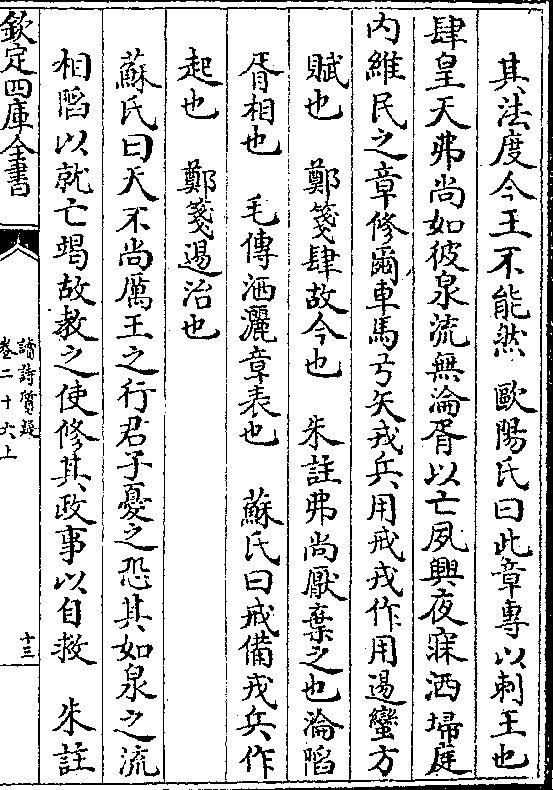 其法度今王不能然　歐陽氏曰此章專以刺王也
肆皇天弗尚如彼泉流無淪胥以亡夙興夜寐洒埽庭
内維民之章修爾車馬弓矢戎兵用戒戎作用逷蠻方
賦也　鄭箋肆故今也　朱註弗尚厭棄之也淪陷
胥相也　毛傳洒灑章表也　蘇氏曰戒備戎兵作
起也　鄭箋逷治也
蘇氏曰天不尚厲王之行君子憂之恐其如泉之流
相陷以就亡竭故教之使修其政事以自救　朱註
欽定四庫全書
讀詩質疑
卷二十六上
十三